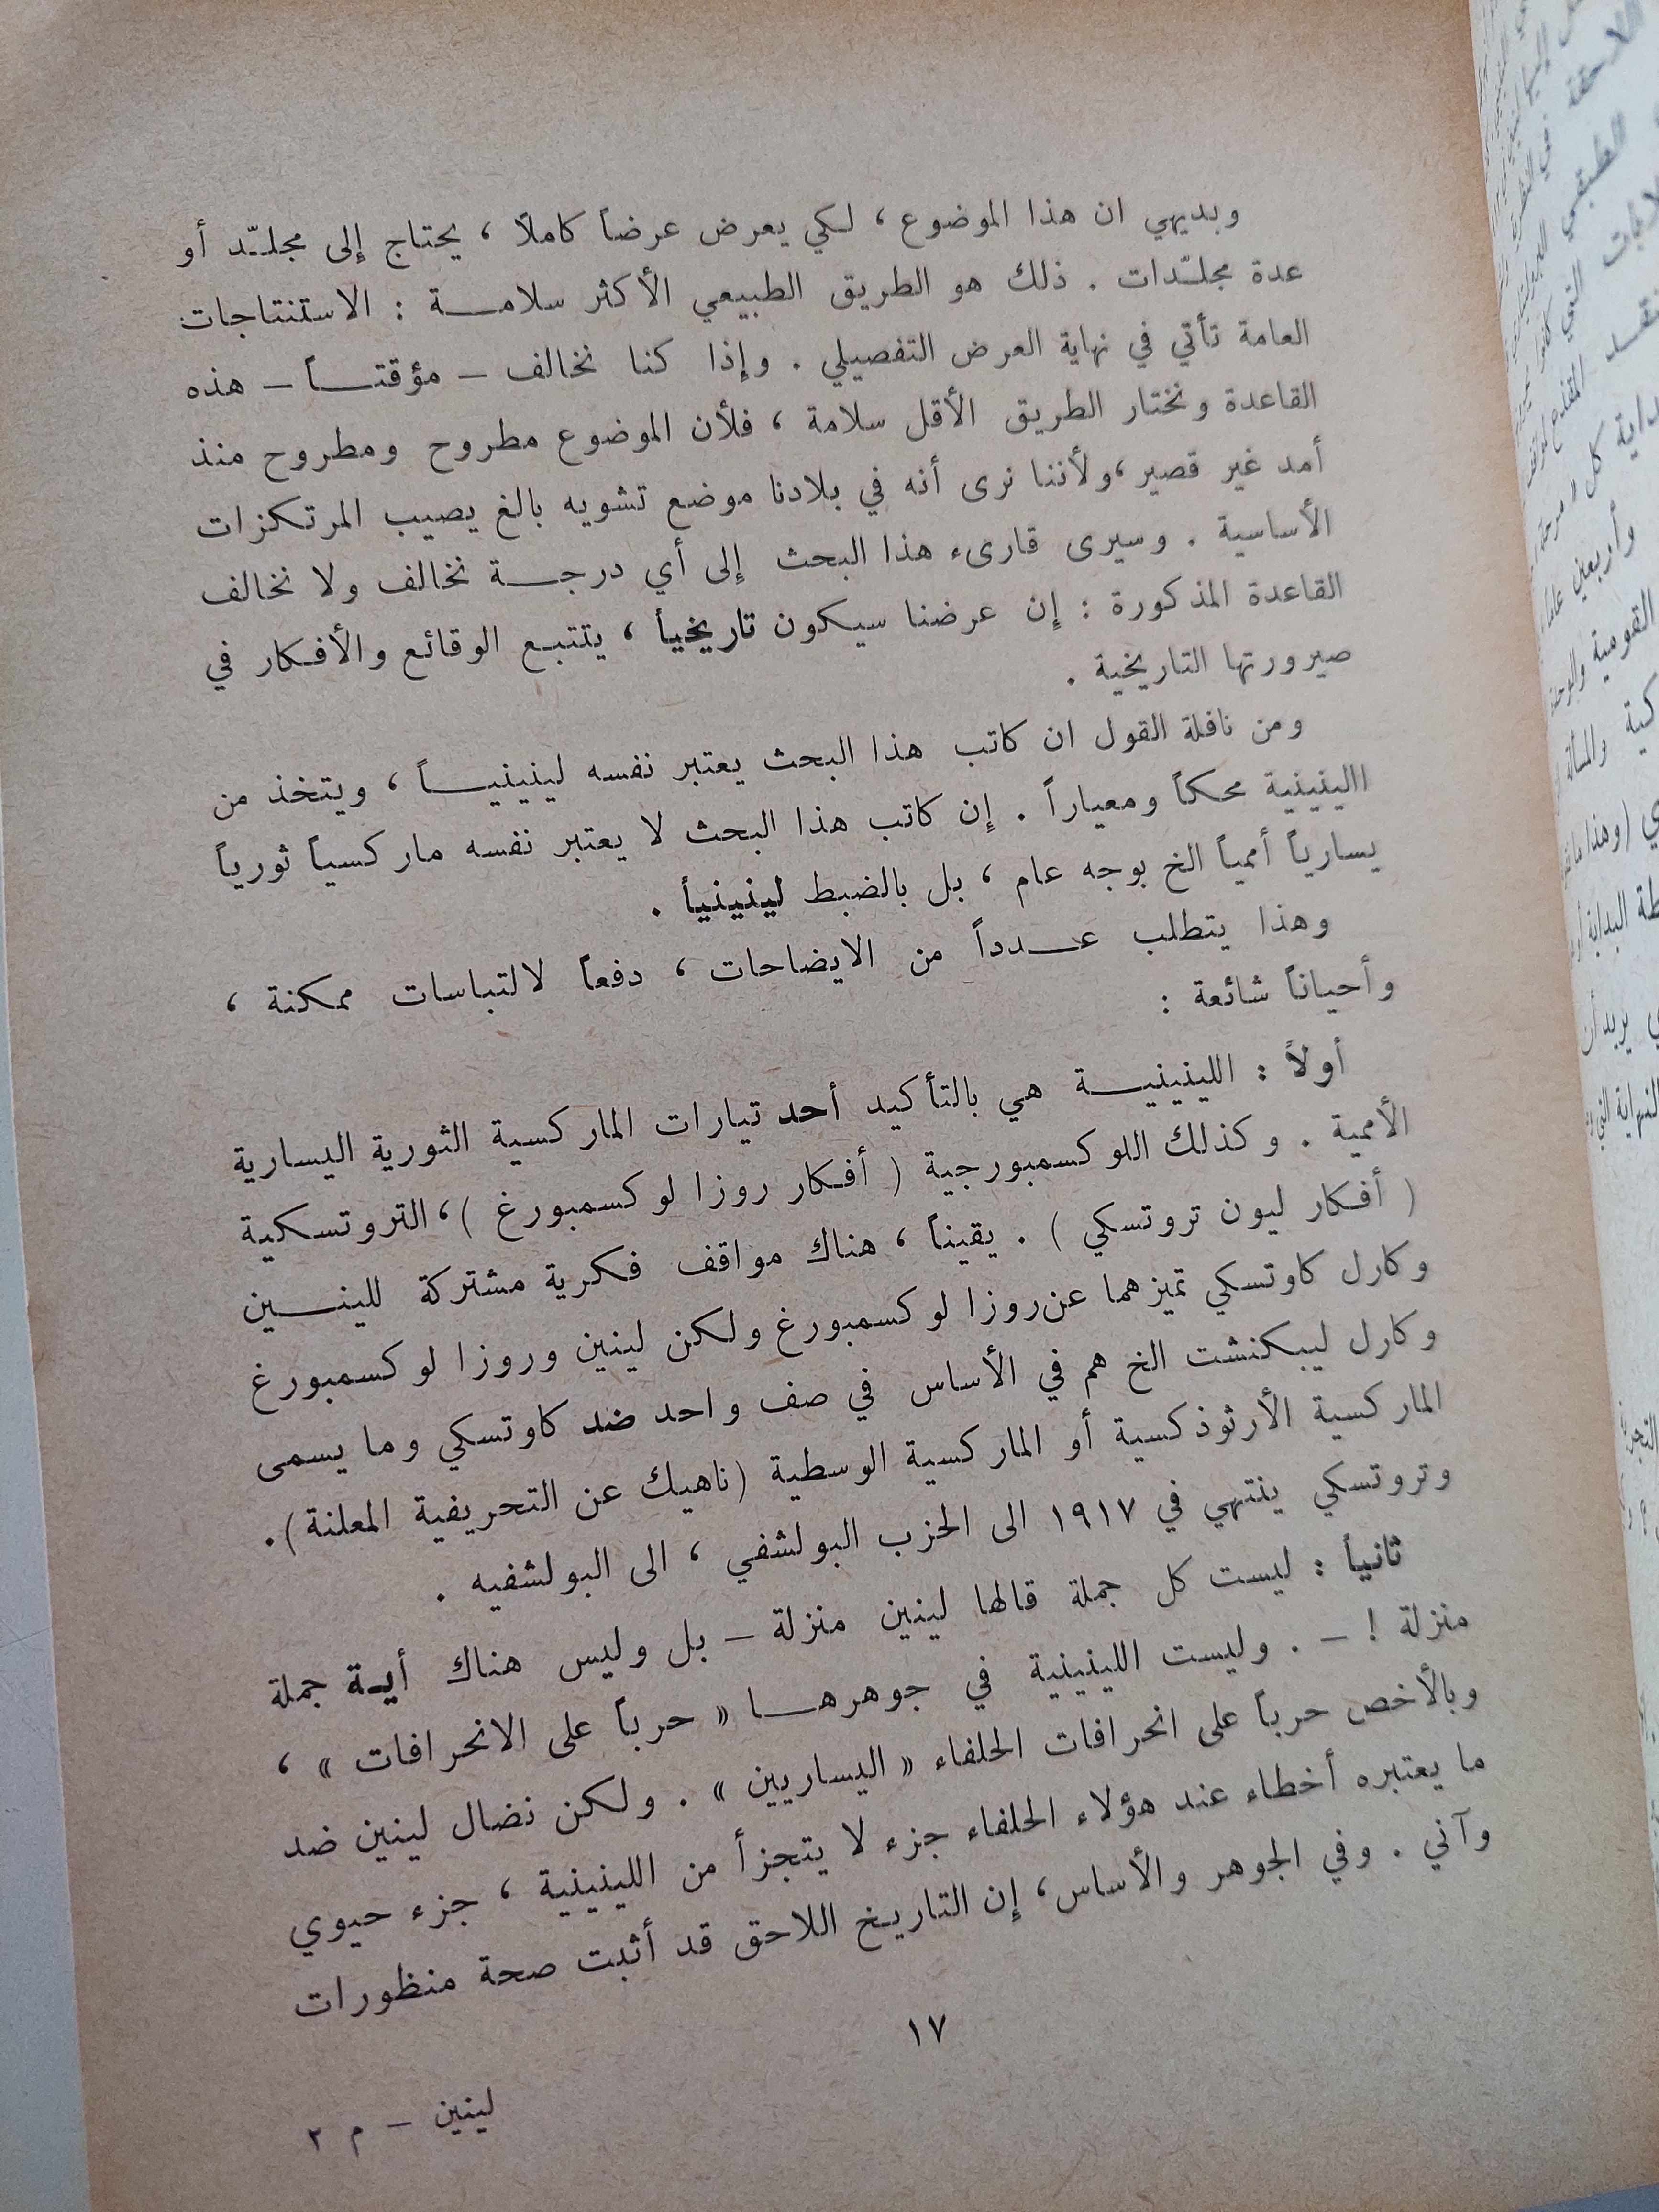 وبديهي ان هذا الموضوع ، لكي يعرض عرضاً كاملاً ، يحتاج إلى مجلـّد أو
عدة مجلـّدات . ذلك هو الطريق الطبيعي الأكثر سلامـــة : الاستنتاجات
العامة تأتي في نهاية العرض التفصيلي . وإذا كنا نخالف – مؤقتـــاً – هذه
القاعدة ونختار الطريق الأقل سلامة ، فلأن الموضوع مطروح ومطروح منذ
أمد غير قصير ، ولأننا نرى أنه في بلادنا موضع تشويه بالغ يصيب المرتكزات
الأساسية . وسيرى قارىء هذا البحث إلى أي درجـــة نخالف ولا نخالف
القاعدة المذكورة : إن عرضنا سيكون تاريخياً ، يتتبع الوقائع والأفكار في
صيرورتها التاريخية .
ومن نافلة القول ان كاتب هذا البحث يعتبر نفسه لينينيـــاً ، ويتخذ من
االينينية محكاً ومعياراً . إن كاتب هذا البحث لا يعتبر نفسه ماركسياً ثورياً
يسارياً أممياً الخ بوجه عام ، بل بالضبط لينينياً .
وهذا يتطلب عـــدداً من الايضاحات ، دفعاً لالتباسات ممكنة ،
وأحياناً شائعة :
أولاً : اللينينيـــة هي بالتأكيد أحد تيارات الماركسية الثورية اليسارية
الأممية . وكذلك اللوكسمبورجية ( أفكار روزا لوكسمبورغ ) ، التروتسكية
( أفكار ليون تروتسكي ) . يقيناً ، هناك مواقف فكرية مشتركة للينـــين
وكارل كاوتسكي تميزهما عن روزا لوكسمبورغ ولكن لينين وروزا لوكسمبورغ
وكارل ليبكنشت الخ هم في الأساس في صف واحد ضد كاوتسكي وما يسمى
الماركسية الأرثوذكسية أو الماركسية الوسطية (ناهيك عن التحريفية المعلنة) .
وتروتسكي ينتهي في ١٩١٧ الى الحزب البولشفي ، الى البولشفيه .
ثانياً : ليست كل جملة قالها لينين منزلة – بل وليس هناك أيـة جملة
منزلة ! – . وليست اللينينية في جوهرهـــا « حرباً على الانحرافات » ،
وبالأخص حرباً على انحرافات الحلفاء « اليساريين » . ولكن نضال لينين ضد
ما يعتبره أخطاء عند هؤلاء الحلفاء جزء لا يتجزأ من اللينينية ، جزء حيوي
وآني . وفي الجوهر والأساس ، إن التاريخ اللاحق قد أثبت صحة منظورات
١٧
لينين – م ٢